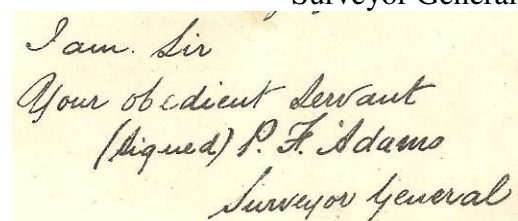 Surveyor General
I am. Sir
Your obedient Servant
(Signed) P. F. Adams
Surveyor General